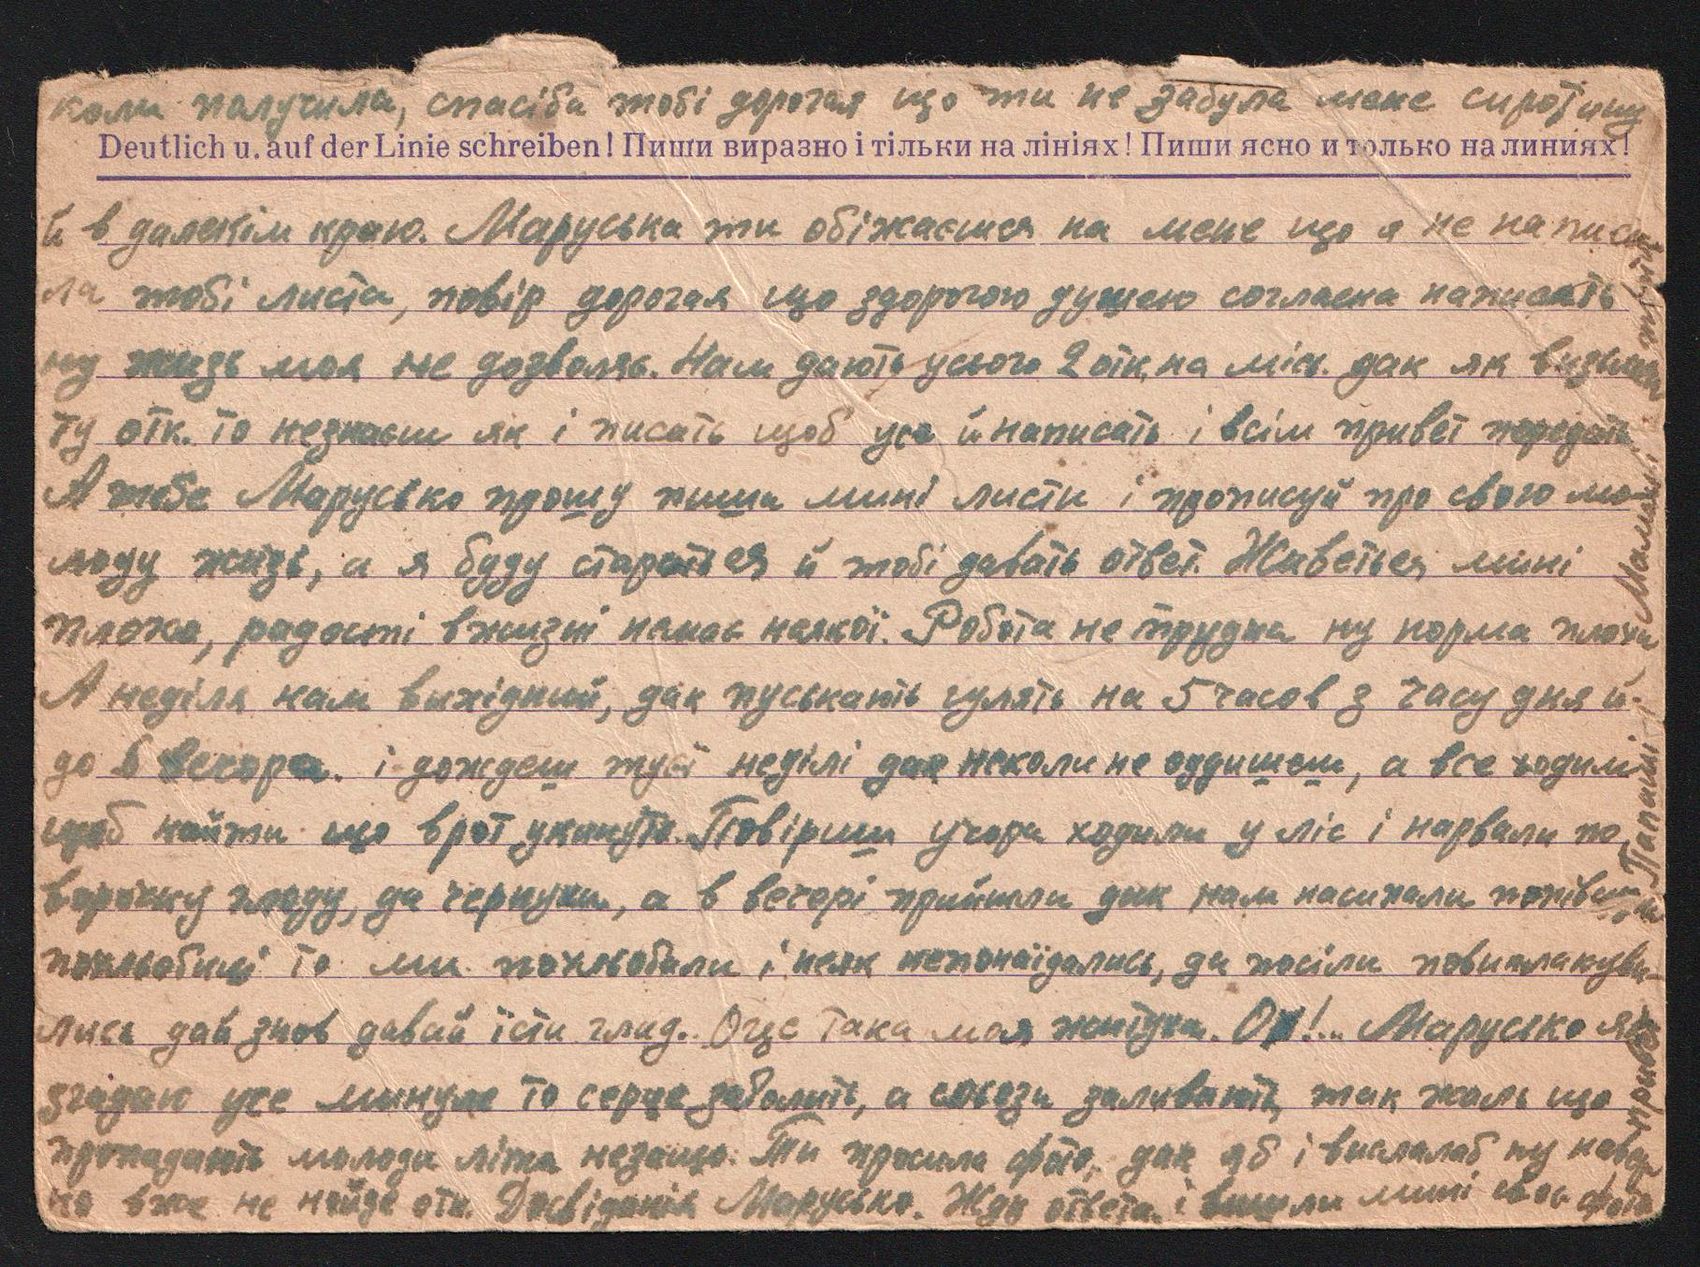 коли получила, спасіба тобі дорогая що ти не забула мене сиротину
Deutlich u. auf der Linie schreiben! Пиши виразно і тільки на лініях! Пиши ясно и только на линиях!
й в далекім краю. Маруська ти обіжаєшся на мене що я не написа
ла тобі листа, повір дорогая що здорогою душею согласна написать
ну жизь моя не дозволяє. Нам дають усього 2 отк. на міс. дак як візьмеш
ту отк. то незнаєш як і писать щоб усе й написать і всім привет передать
А тебе Марусько прошу пиши мині листи і прописуй про свою мо-
лоду жизь, а я буду стараться й тобі давать ответ. Живеться мині
плохо, радості вжизні немає ніякої. Робота не трудна ну норма плоха
А неділя нам вихідний, дак пускають гулять на 5 часов з часу дня й
до 6 вечора. і дождеш тусі неділі дак ніколи не оддишеш, а все ходим
щоб найти що врот укинуть. Повіриш учора ходили у ліс і нарвали по
ворочку глоду, да чернухи, а в вечері прийшли дак нам насипали
похльобки то ми похльобали і ніяк непонаїдались, да посіли повиплакува-
лись дай знов давай їсти глид. Оце така моя житуха. Ох!... Марусько як
згадаю усе минуле то серце заболить, а сльози заливають, так жаль що
пропадають молоди літа незащо. Ти просила фото, дак яб і вислалаб ну навер
но вже не найде отк. Досвіданія Марусько. Жду ответа. і вишли мині своє фото
привет Папаші і Мамаші